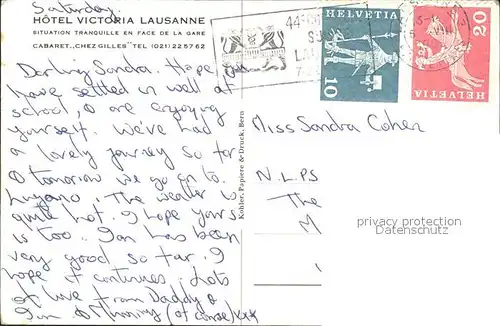 Saturday.
HÔTEL VICTORIA LAUSANNE
SITUATION TRANQUILLE EN FACE DE LA GARE
CABARET "CHEZ GILLES" TEL (021) 22 57 62
Darling Sandra Hope you
have settled in well at
school, & are enjoying
yourself. We've had
a lovely journey so far
& tomorrow we go on to
Lugano. The weather is
quite hot. I hope yours
is too. Ian has been
very good so far. I
hope it continues. Lots
of love from Daddy &
Ian & Mummy (of course) xxx
Kohler, Papiere & Druck, Bern
44
HELVETIA
10
20
HELVETIA
Miss Sandra Cohen
N.L.P.S
The
M
privacy protection
Datenschutz